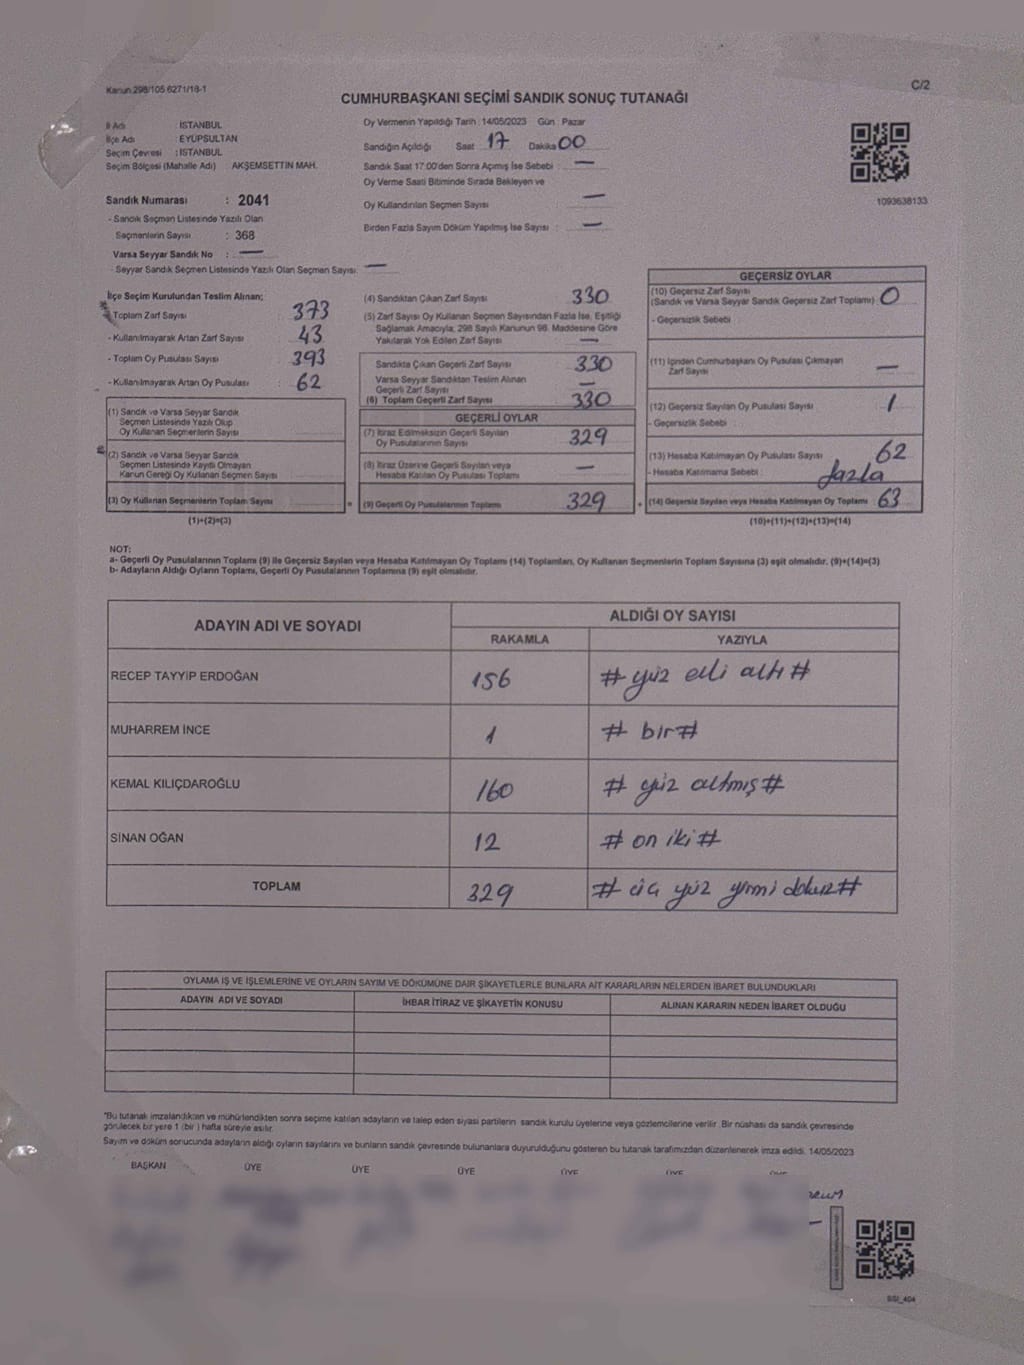 Kanun 298/105 6271/18-1
C/2
CUMHURBAŞKANI SEÇİMİ SANDIK SONUÇ TUTANAĞI
İl Adı : İSTANBUL
İlçe Adı : EYÜPSULTAN
Seçim Çevresi : İSTANBUL
Seçim Bölgesi (Mahalle Adı) AKŞEMSETTİN MAH.
Sandık Numarası : 2041
- Sandık Seçmen Listesinde Yazılı Olan
Seçmenlerin Sayısı : 368
Varsa Seyyar Sandık No : —
- Seyyar Sandık Seçmen Listesinde Yazılı Olan Seçmen Sayısı: —
Oy Vermenin Yapıldığı Tarih : 14/05/2023 Gün : Pazar
Sandığın Açıldığı Saat 17 Dakika 00
Sandık Saat 17:00'den Sonra Açımış İse Sebebi : —
Oy Verme Saati Bitiminde Sırada Bekleyen ve
Oy Kullandırılan Seçmen Sayısı —
Birden Fazla Sayım Döküm Yapılmış İse Sayısı : —
1093638133
İlçe Seçim Kurulundan Teslim Alınan;
- Toplam Zarf Sayısı 373
- Kullanılmayarak Artan Zarf Sayısı 43
- Toplam Oy Pusulası Sayısı 393
- Kullanılmayarak Artan Oy Pusulası : 62
(1) Sandık ve Varsa Seyyar Sandık
Seçmen Listesinde Yazılı Olup
Oy Kullanan Seçmenlerin Sayısı
(2) Sandık ve Varsa Seyyar Sandık
Seçmen Listesinde Kayıtlı Olmayan
Kanun Gereği Oy Kullanan Seçmen Sayısı
(3) Oy Kullanan Seçmenlerin Toplam Sayısı
(1)+(2)=(3)
(4) Sandıktan Çıkan Zarf Sayısı 330
(5) Zarf Sayısı Oy Kullanan Seçmen Sayısından Fazla İse, Eşitliği
Sağlamak Amacıyla, 298 Sayılı Kanunun 98. Maddesine Göre
Yakılarak Yok Edilen Zarf Sayısı —
Sandıkta Çıkan Geçerli Zarf Sayısı 330
Varsa Seyyar Sandıktan Teslim Alınan
Geçerli Zarf Sayısı —
(6) Toplam Geçerli Zarf Sayısı 330
GEÇERLİ OYLAR
(7) İtiraz Edilmeksizin Geçerli Sayılan
Oy Pusulalarının Sayısı 329
(8) İtiraz Üzerine Geçerli Sayılan veya
Hesaba Katılan Oy Pusulası Toplamı —
= (9) Geçerli Oy Pusulalarının Toplamı 329
GEÇERSİZ OYLAR
(10) Geçersiz Zarf Sayısı
(Sandık ve Varsa Seyyar Sandık Geçersiz Zarf Toplamı) : 0
- Geçersizlik Sebebi :
(11) İçinden Cumhurbaşkanı Oy Pusulası Çıkmayan
Zarf Sayısı —
(12) Geçersiz Sayılan Oy Pusulası Sayısı : 1
- Geçersizlik Sebebi :
(13) Hesaba Katılmayan Oy Pusulası Sayısı : 62
- Hesaba Katılmama Sebebi : fazla
+ (14) Geçersiz Sayılan veya Hesaba Katılmayan Oy Toplamı : 63
(10)+(11)+(12)+(13)=(14)
NOT:
a- Geçerli Oy Pusulalarının Toplamı (9) ile Geçersiz Sayılan veya Hesaba Katılmayan Oy Toplamı (14) Toplamları, Oy Kullanan Seçmenlerin Toplam Sayısına (3) eşit olmalıdır. (9)+(14)=(3)
b- Adayların Aldığı Oyların Toplamı, Geçerli Oy Pusulalarının Toplamına (9) eşit olmalıdır.
ADAYIN ADI VE SOYADI
ALDIĞI OY SAYISI
RAKAMLA YAZIYLA
RECEP TAYYİP ERDOĞAN 156 # yüz elli altı #
MUHARREM İNCE 1 # bir #
KEMAL KILIÇDAROĞLU 160 # yüz altmış #
SİNAN OĞAN 12 # on iki #
TOPLAM 329 # üç yüz yirmi dokuz #
OYLAMA İŞ VE İŞLEMLERİNE VE OYLARIN SAYIM VE DÖKÜMÜNE DAİR ŞİKAYETLERLE BUNLARA AİT KARARLARIN NELERDEN İBARET BULUNDUKLARI
ADAYIN ADI VE SOYADI İHBAR İTİRAZ VE ŞİKAYETİN KONUSU ALINAN KARARIN NEDEN İBARET OLDUĞU
*Bu tutanak imzalandıktan ve mühürlendikten sonra seçime katılan adayların ve talep eden siyasi partilerin sandık kurulu üyelerine veya gözlemcilerine verilir. Bir nüshası da sandık çevresinde
görülecek bir yere 1 (bir ) hafta süreyle asılır.
Sayım ve döküm sonucunda adayların aldığı oyların sayılarını ve bunların sandık çevresinde bulunanlara duyurulduğunu gösteren bu tutanak tarafımızdan düzenlenerek imza edildi. 14/05/2023
BAŞKAN ÜYE ÜYE ÜYE ÜYE ÜYE ÜYE
SSI_404